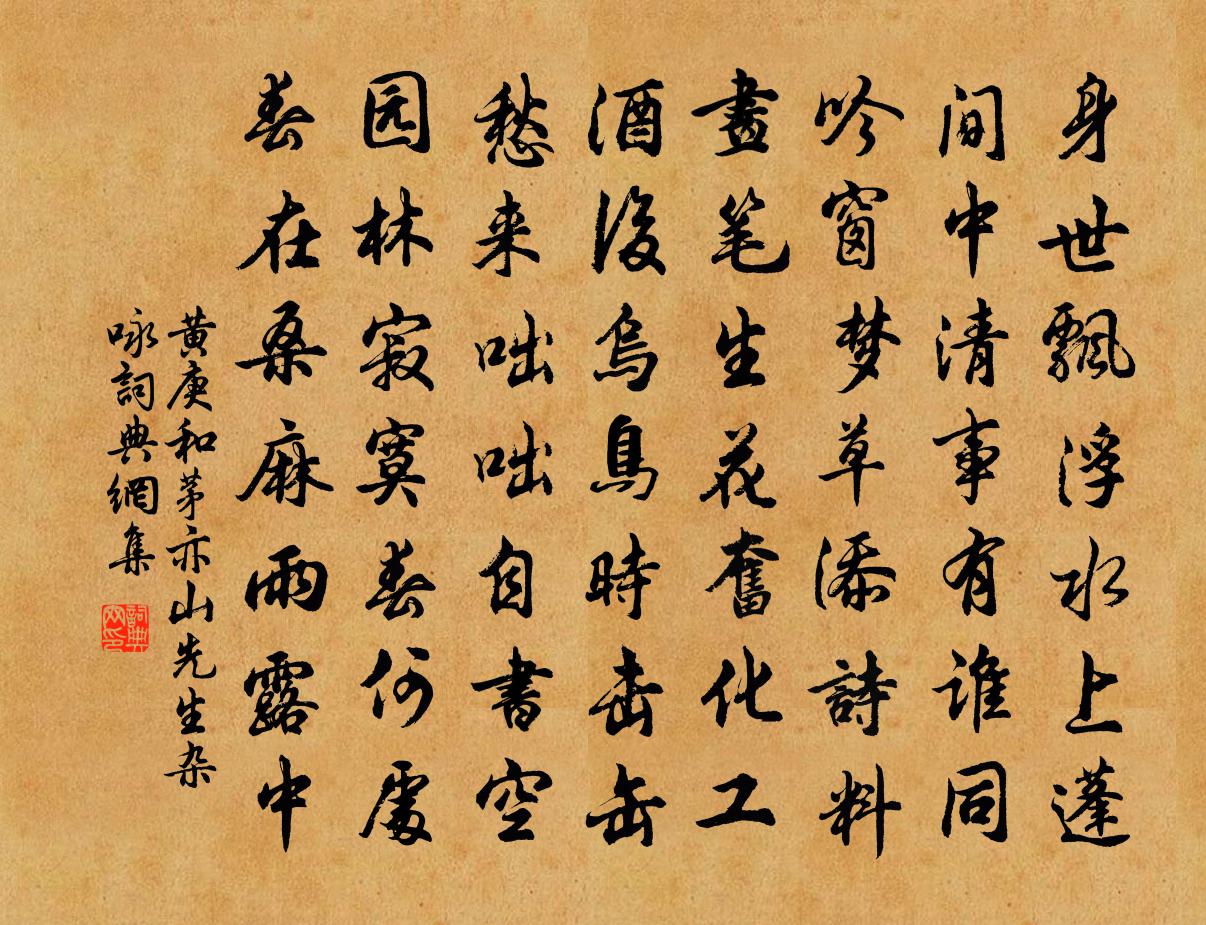 身世飄浮水上蓬
间中清事有谁同
吟窗梦草添詩料
畫笔生花奮化工
酒後烏烏時击缶
愁来咄咄自書空
园林寂寞春何處
春在桑麻雨露中
黄庚和茅亦山先生杂
咏詞典網集
詞典
网印